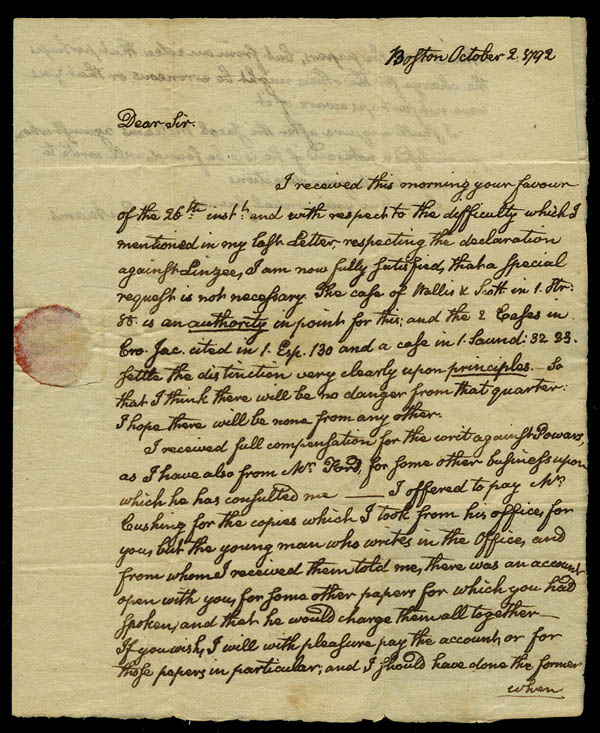 Boston October 2. 1792
Dear Sir.
I received this morning your favour
of the 26th inst: and with respect to the difficulty which I
mentioned in my last Letter, respecting the declaration
against Linzee, I am now fully satisfied, that a special
request is not necessary. The case of Wallis & Scott in 1. Str:
88. is an authority in point for this; and the 2 Cases in
Cro. Jac. cited in 1. Esp. 130 and a case in 1. Saund: 32 33.
settle the distinction very clearly upon principles. So
that I think there will be no danger from that quarter:
I hope there will be none from any other.
I received full compensation for the writ against Powars,
as I have also from Mr. Ford, for some other business upon
which he has consulted me — I offered to pay Mr.
Cushing for the copies which I took from his office, for
you, but the young man who writes in the Office, and
from whom I received them told me, there was an account
open with you, for some other papers for which you had
spoken, and that he would charge them all together —
If you wish, I will with pleasure pay the account, or for
those papers in particular; and I should have done the former
when